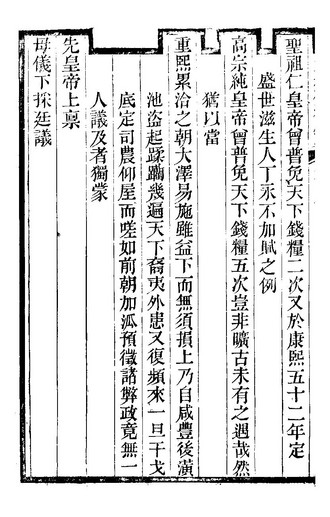 聖祖仁皇帝曾普免天下錢糧二次又於康熙五十二年定
盛世滋生人丁永不加賦之例
高宗純皇帝曾普免天下錢糧五次豈非曠古未有之遇哉然
猶以當
重熙累洽之朝大澤易施雖益下而無須損上乃自咸豐後潢
池盜起蹂躪幾遍天下裔夷外患又復頻來一旦干戈
底定司農仰屋而嗟如前朝加派預徵諸弊政竟無一
人議及者獨蒙
先皇帝上禀
母儀下採廷議